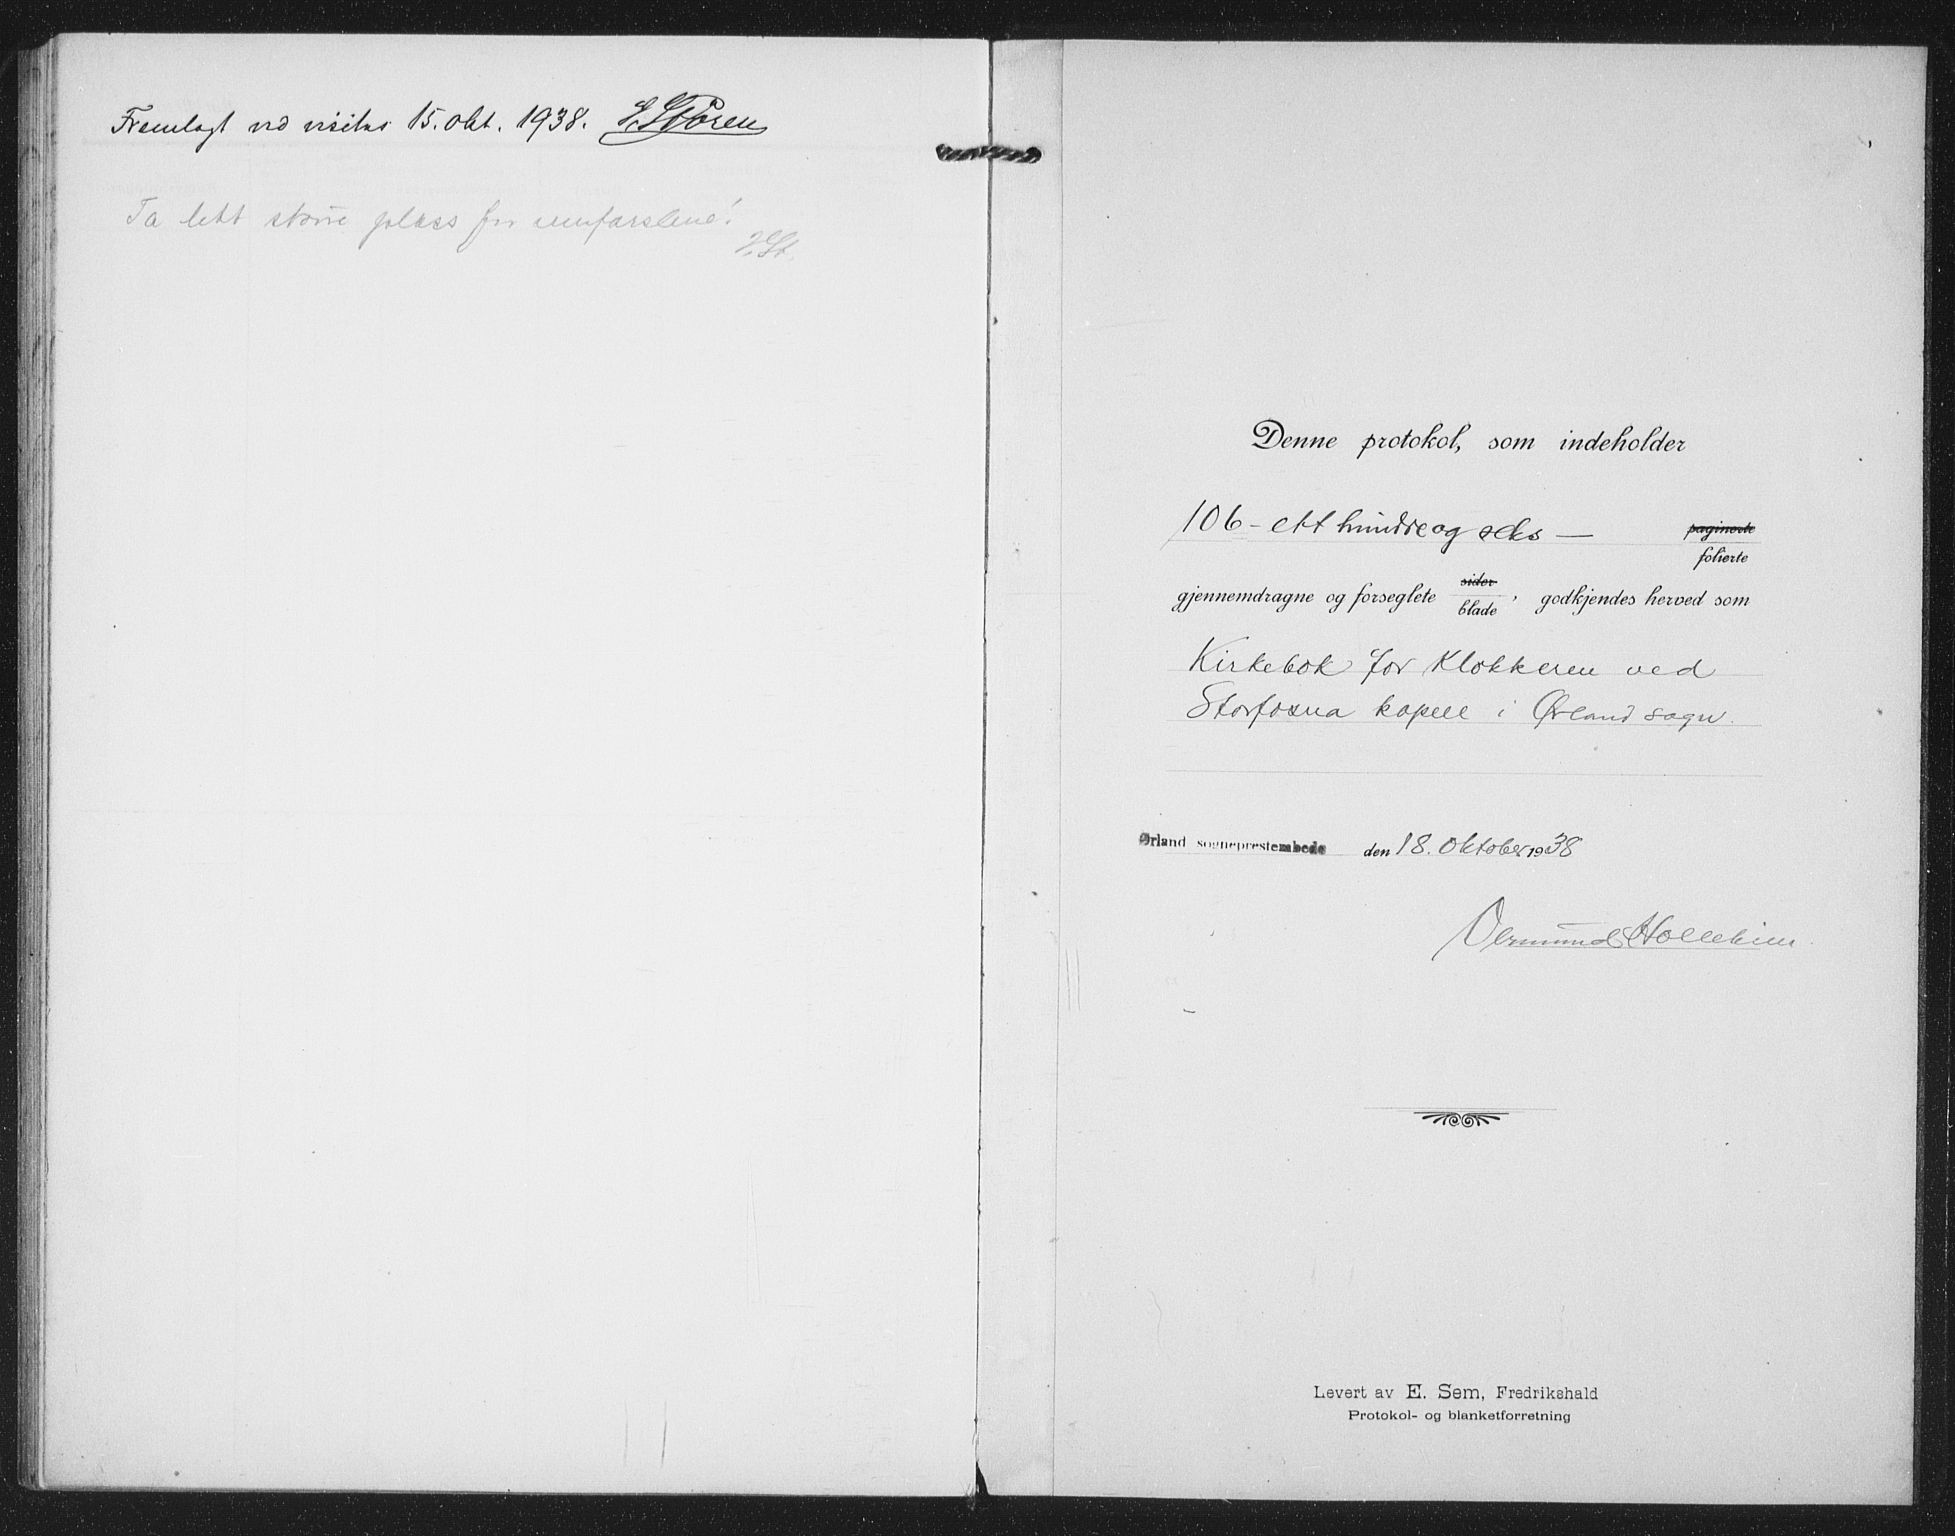 Fremlagt ved visitas 15. okt. 1938. J. Støren
Ta litt større plass for innførslene!
J. St.
Denne protokol, som indeholder
106 - ett hundre og seks —
paginerte
folierte
gjennemdragne og forseglete sider
blade, godkjendes herved som
Kirkebok for klokkeren ved
Storfosna kapell i Ørland sogn.
Ørland sogneprestembede den 18. oktober 1938
Levert av E. Sem, Fredrikshald
Protokol- og blanketforretning